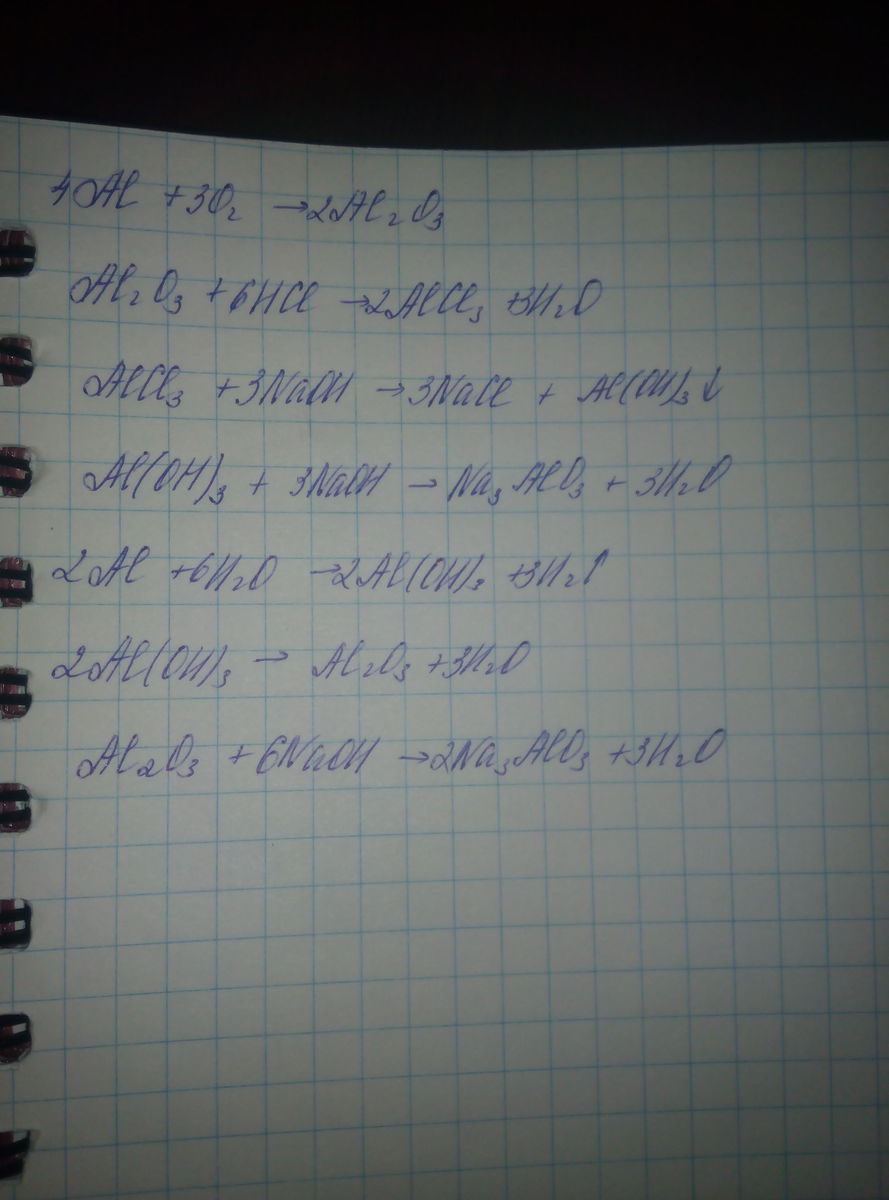 4Al + 3O₂ → 2Al₂O₃
Al₂O₃ + 6HCl → 2AlCl₃ + 3H₂O
AlCl₃ + 3NaOH → 3NaCl + Al(OH)₃↓
Al(OH)₃ + 3NaOH → Na₃AlO₃ + 3H₂O
2Al + 6H₂O → 2Al(OH)₃ + 3H₂↑
2Al(OH)₃ → Al₂O₃ + 3H₂O
Al₂O₃ + 6NaOH → 2Na₃AlO₃ + 3H₂O